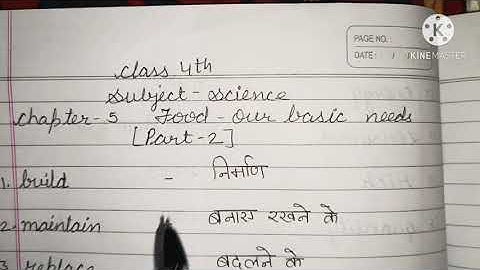 K
KINEMASTER
PAGE NO.:
DATE: / /
Class 4th
Subject - Science
Chapter - 5 Food - Our basic needs
[Part-2]
1. build - निर्माण
2. maintain बनाए रखने के
3. replace बदलने के